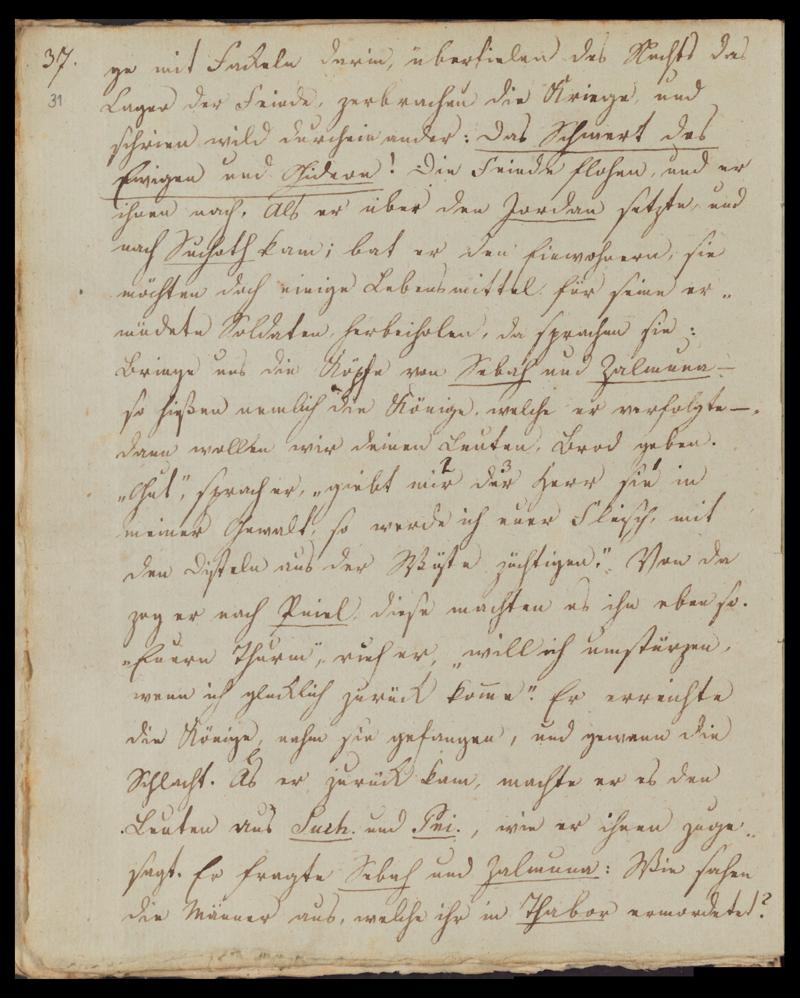 37. ge mit Fakeln darin, überfielen des Nachts das
31 Lager der Feinde, zerbrachen die Kriege, und
schrien wild durcheinander: Das Schwert des
Ewigen und Gideon! Die Feinde flohen, und er
ihnen nach. Als er über den Jordan setzte, und
nach Suchoth kam; bat er den Einwohnern, sie
möchten doch einige Lebensmittel für seine er„
müdete Soldaten, herbeiholen, da sprachen sie:
Bringe uns die Köpfe von Sebah und Zalmuna —
so hießen nemlich die Könige, welche er verfolgte —,
dann wollen wir deinen Leuten, Brod geben.
„Gut", sprach er, „giebt mir 2 der 3 Herr sie 1 in
meiner Gewalt, so werde ich euer Fleisch, mit
den Disteln aus der Wüste züchtigen." Von da
zog er nach Pniel, diese machten es ihm eben so.
„Euern Thurm", rief er, „will ich umstürzen,
wenn ich glücklich zurück kom̄e". Er erreichte
die Könige, nahm sie gefangen, und gewann die
Schlacht. Als er zurück kam, machte er es den
Leuten aus Such. und Pni., wie er ihnen zuge„
sagt. Er fragte Sebah und Zalmuna: Wie sahen
die Männer aus, welche ihr in Thabor ermordetet?